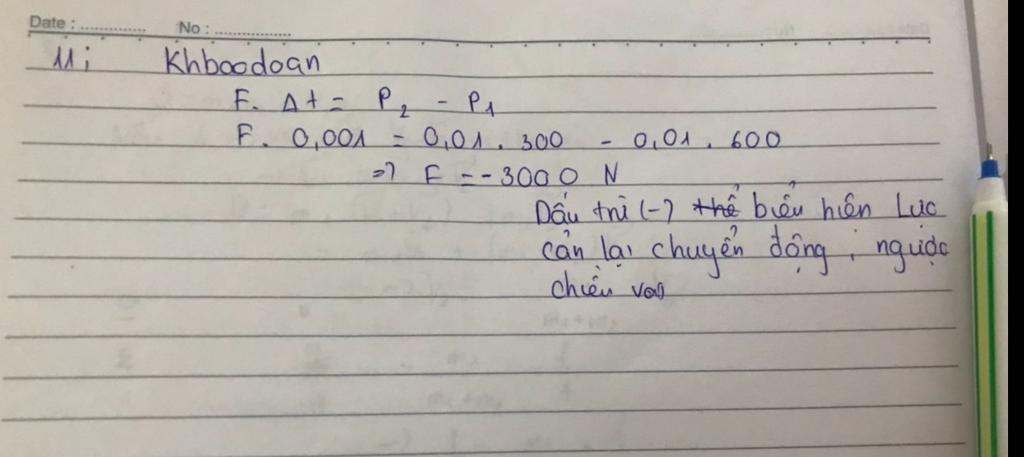 Date : .............. No : ................
11; Khboodoan
F. Δt = P₂ - P₁
F. 0,001 = 0,01 . 300 - 0,01 . 600
=> F = -3000 N
Dấu trừ (-) thể biểu hiện lực
cản lại chuyển động, ngược
chiều